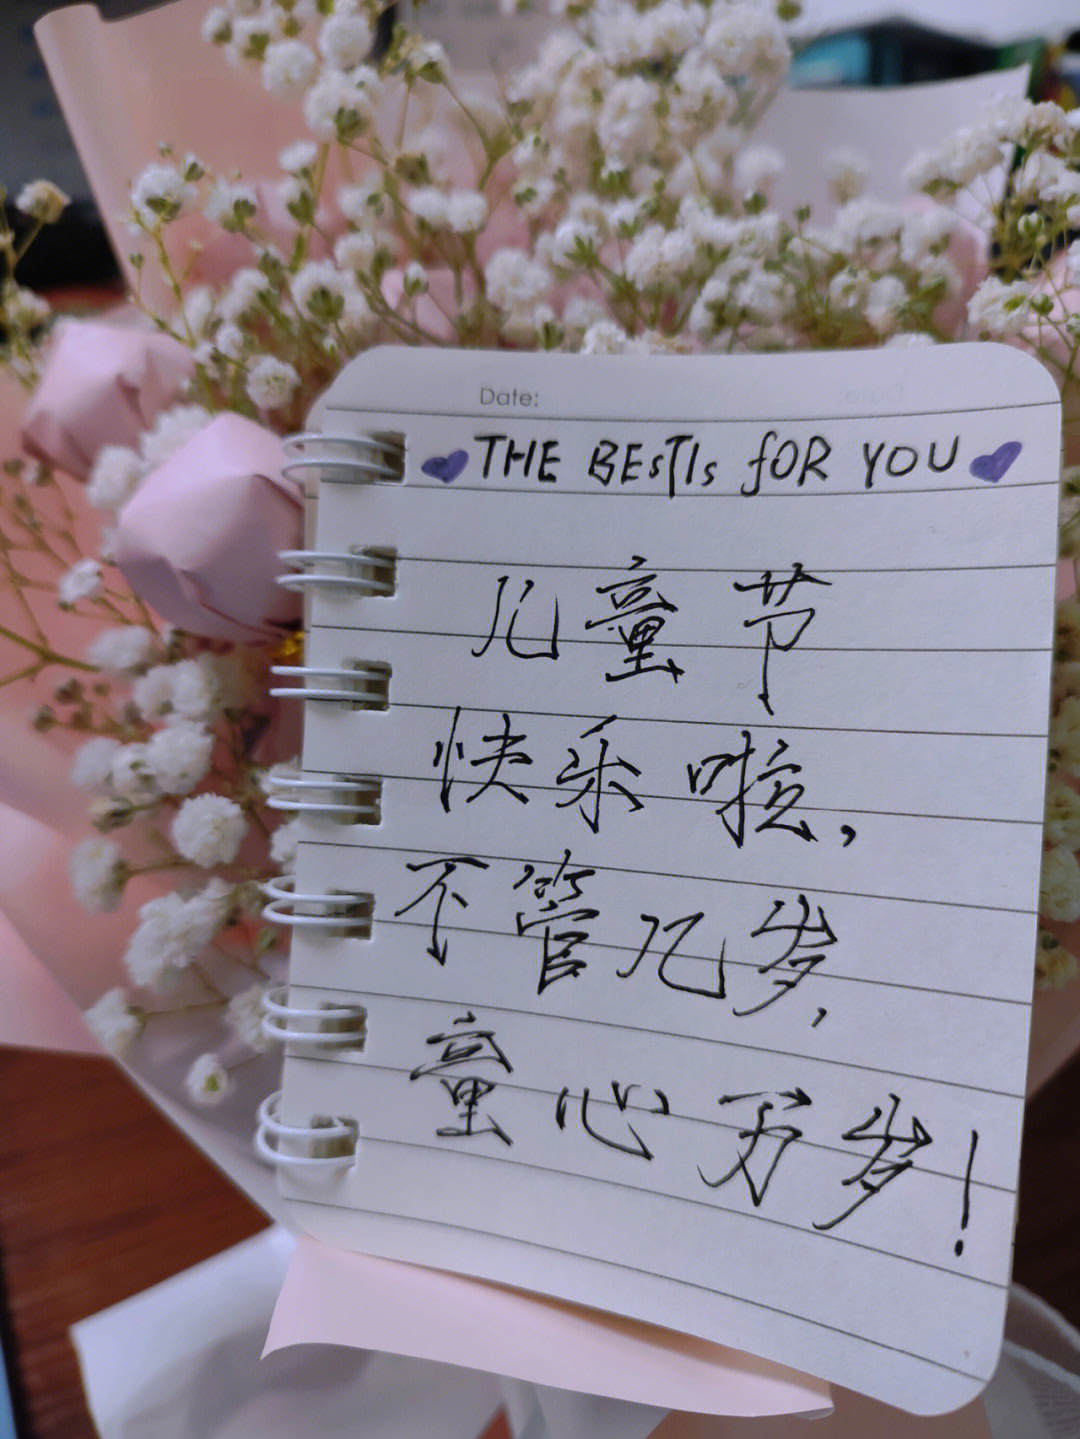 Date:
THE BEsTIs fOR YOU
儿童节
快乐啦,
不管几岁,
童心万岁!